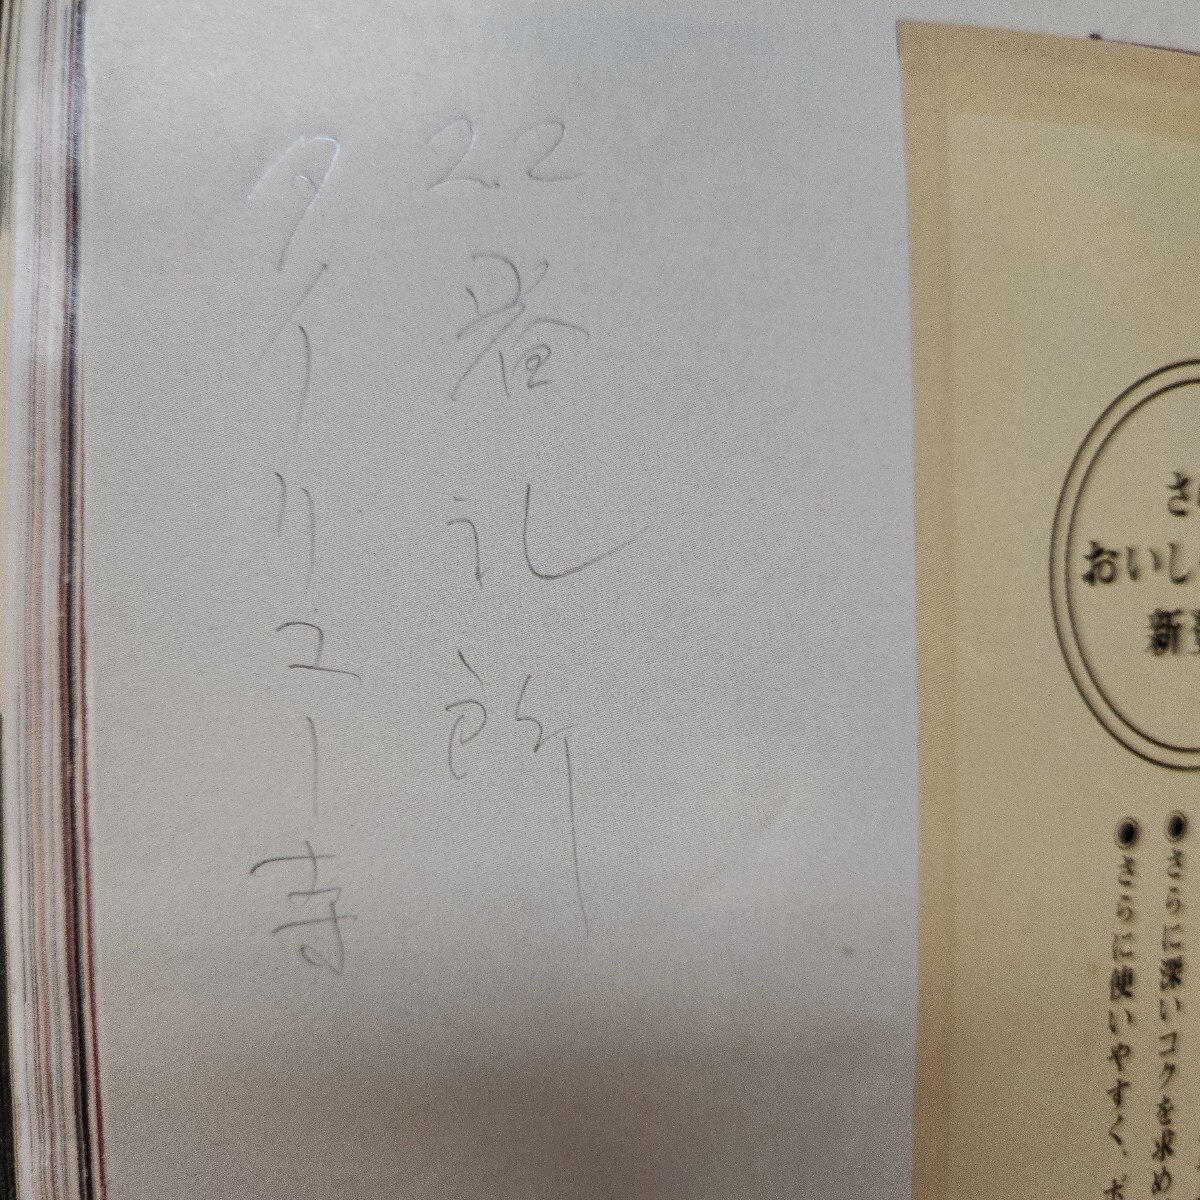 22番札所
タイリユー寺
おいし
新
●さらに深いコクを求め
●さらに使いやすく、